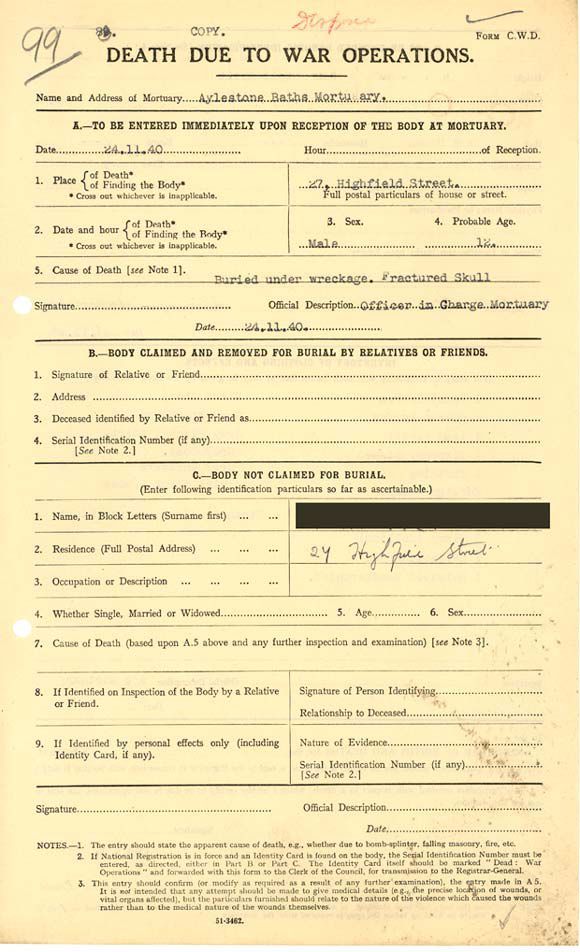 99
COPY.
FORM C.W.D.
DEATH DUE TO WAR OPERATIONS.
Name and Address of Mortuary Aylestone Baths Mortuary.
A.—TO BE ENTERED IMMEDIATELY UPON RECEPTION OF THE BODY AT MORTUARY.
Date 24.11.40. Hour of Reception.
1. Place { of Death*
of Finding the Body*
* Cross out whichever is inapplicable.
27, Highfield Street.
Full postal particulars of house or street.
2. Date and hour { of Death*
of Finding the Body*
* Cross out whichever is inapplicable.
3. Sex. 4. Probable Age.
Male 12.
5. Cause of Death [see Note 1].
Buried under wreckage. Fractured Skull
Signature Official Description Officer in Charge Mortuary
Date 24.11.40.
B.—BODY CLAIMED AND REMOVED FOR BURIAL BY RELATIVES OR FRIENDS.
1. Signature of Relative or Friend
2. Address
3. Deceased identified by Relative or Friend as
4. Serial Identification Number (if any)
[See Note 2.]
C.—BODY NOT CLAIMED FOR BURIAL.
(Enter following identification particulars so far as ascertainable.)
1. Name, in Block Letters (Surname first) ... ...
2. Residence (Full Postal Address) ... ... ... 27 Highfield Street
3. Occupation or Description ... ... ... ...
4. Whether Single, Married or Widowed 5. Age 6. Sex
7. Cause of Death (based upon A.5 above and any further inspection and examination) [see Note 3].
8. If Identified on Inspection of the Body by a Relative
or Friend.
Signature of Person Identifying
Relationship to Deceased
9. If Identified by personal effects only (including
Identity Card, if any).
Nature of Evidence
Serial Identification Number (if any)
[See Note 2.]
Signature Official Description
Date
NOTES.—1. The entry should state the apparent cause of death, e.g., whether due to bomb-splinter, falling masonry, fire, etc.
2. If National Registration is in force and an Identity Card is found on the body, the Serial Identification Number must be
entered, as directed, either in Part B or Part C. The Identity Card itself should be marked "Dead : War
Operations" and forwarded with this form to the Clerk of the Council, for transmission to the Registrar-General.
3. This entry should confirm (or modify as required as a result of any further examination), the entry made in A 5.
It is not intended that any attempt should be made to give medical details (e.g., the precise location of wounds, or
vital organs affected), but the particulars furnished should relate to the nature of the violence which caused the wounds
rather than to the medical nature of the wounds themselves.
51-3462.